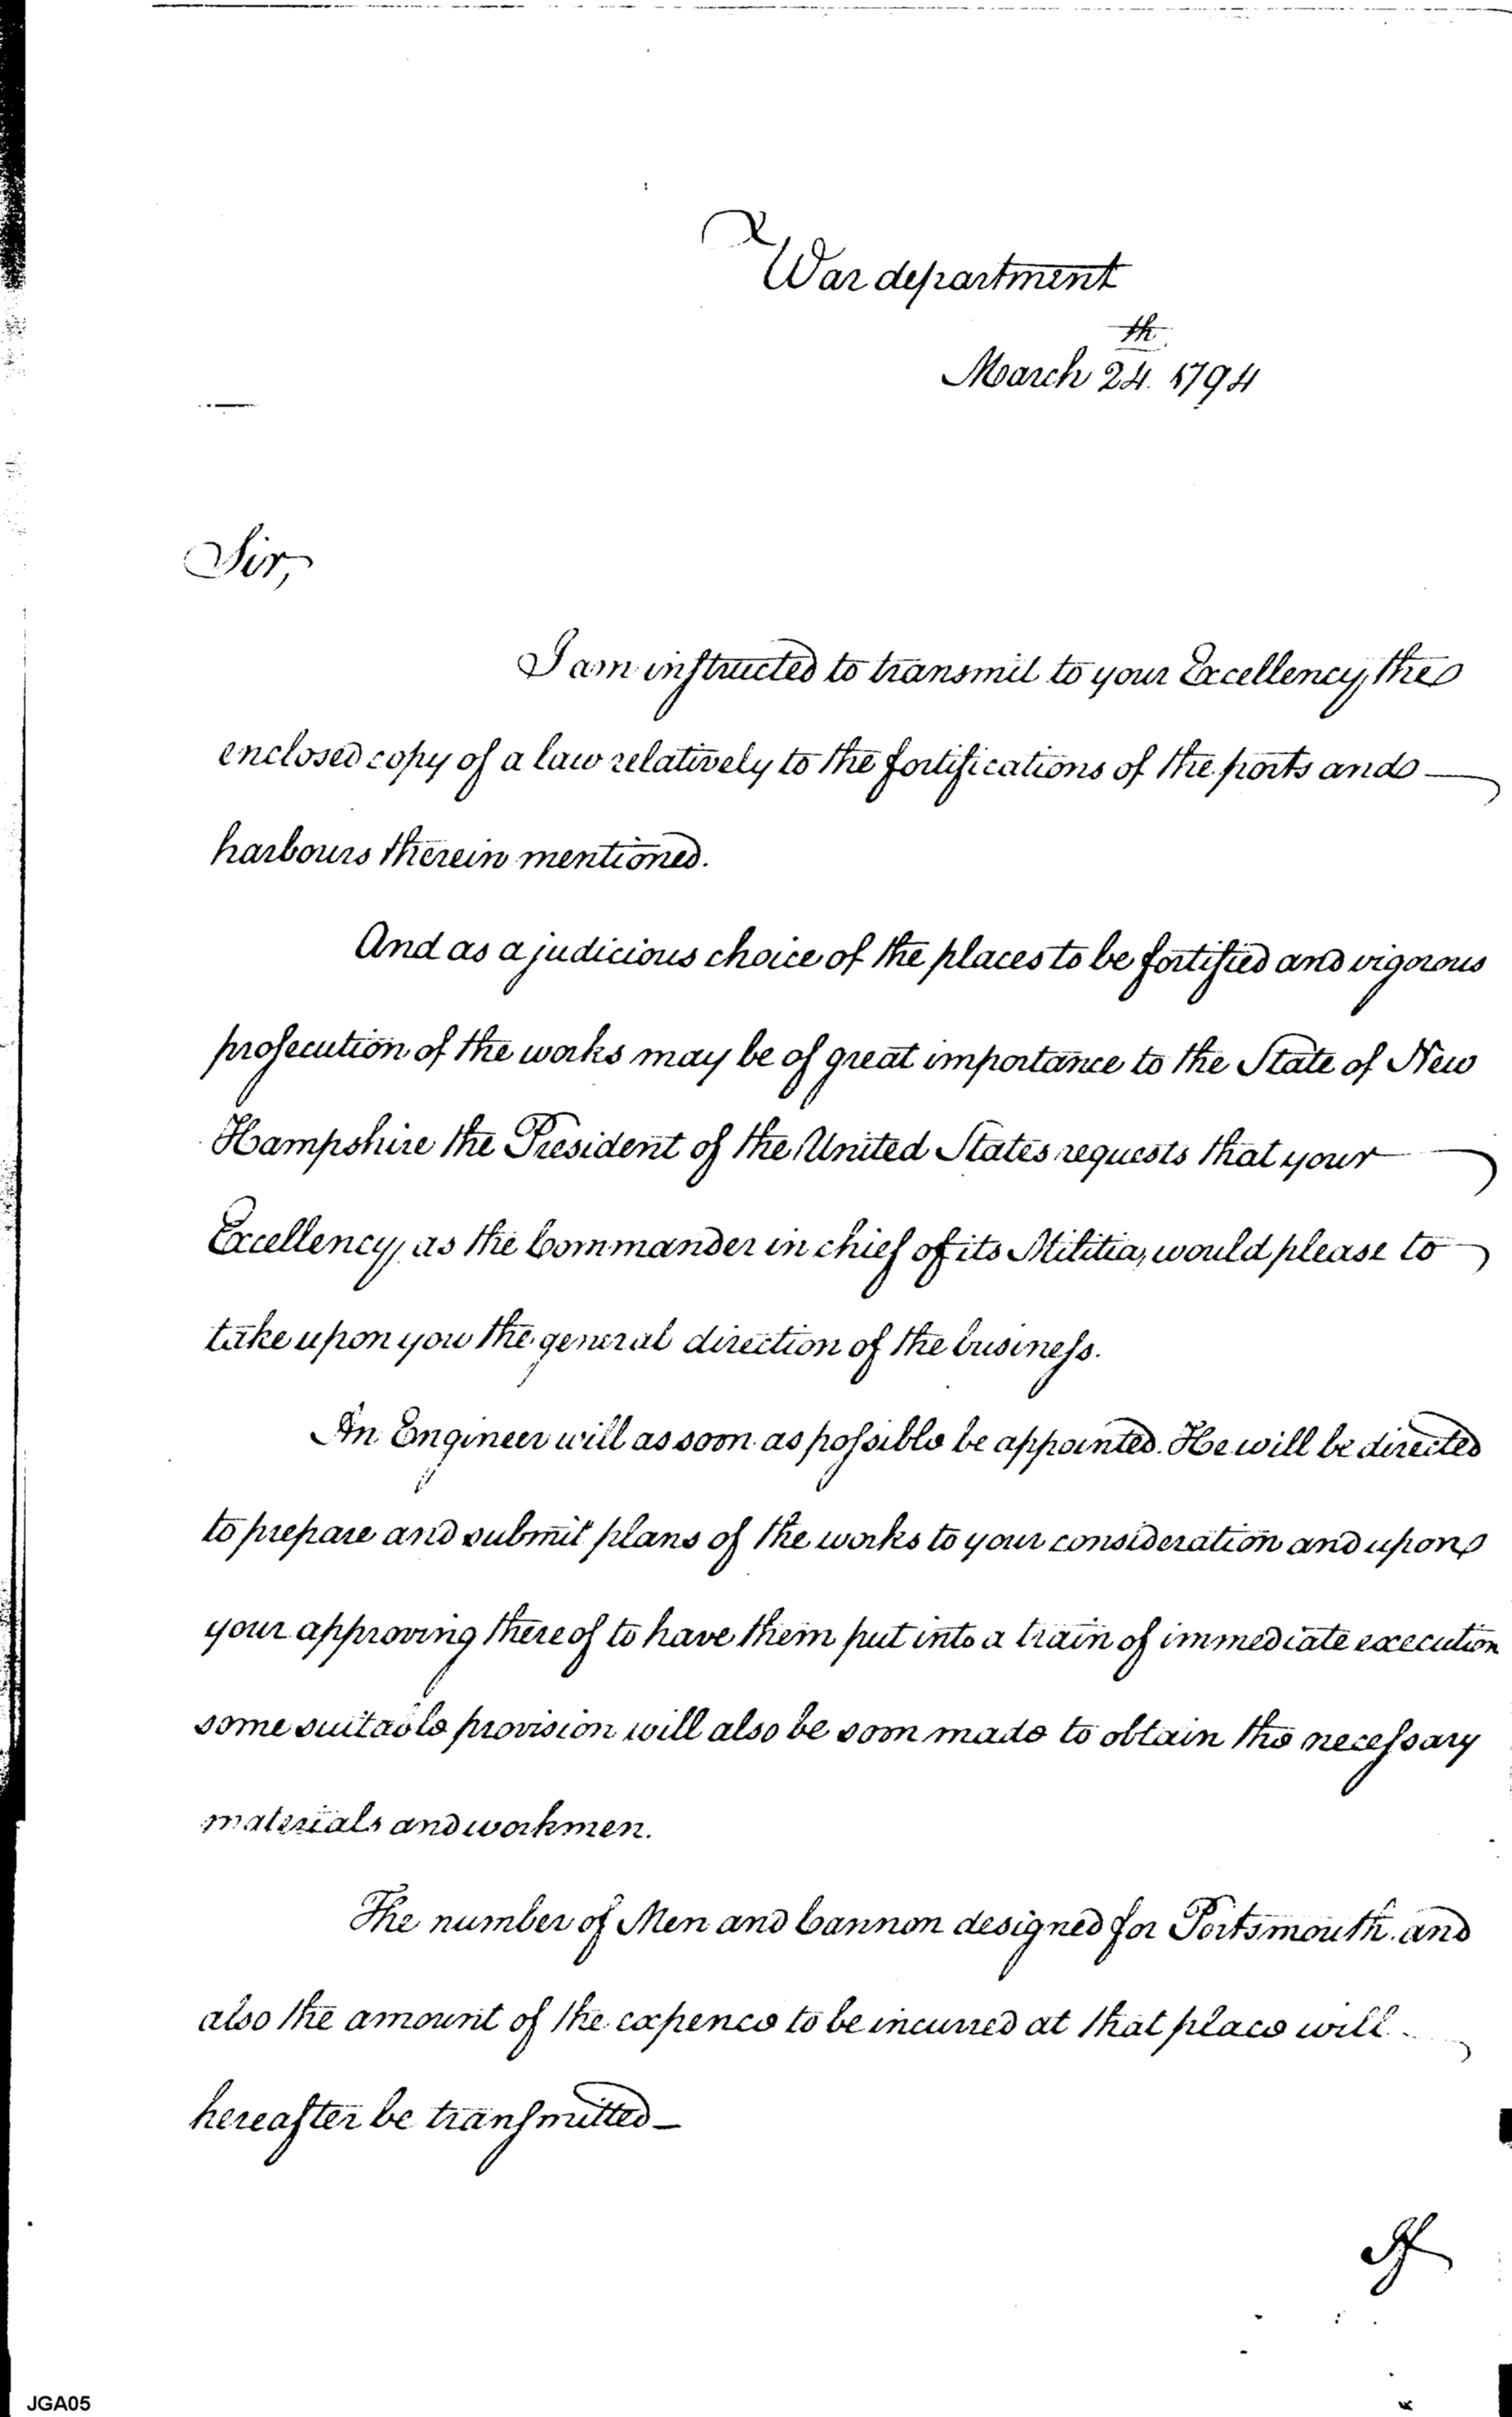 War department
March 24.th 1794
Sir,
I am instructed to transmit to your Excellency, the
enclosed copy of a law relatively to the fortifications of the ports and
harbours therein mentioned.
And as a judicious choice of the places to be fortified and vigorous
prosecution of the works may be of great importance to the State of New
Hampshire the President of the United States requests that your
Excellency, as the Commander in chief of its Militia, would please to
take upon you the general direction of the business.
An Engineer will as soon as possible be appointed. He will be directed
to prepare and submit plans of the works to your consideration and upon
your approving thereof to have them put into a train of immediate execution
some suitable provision will also be soon made to obtain the necessary
materials and workmen.
The number of Men and Cannon designed for Portsmouth. and
also the amount of the expence to be incurred at that place will
hereafter be transmitted—
If
JGA05